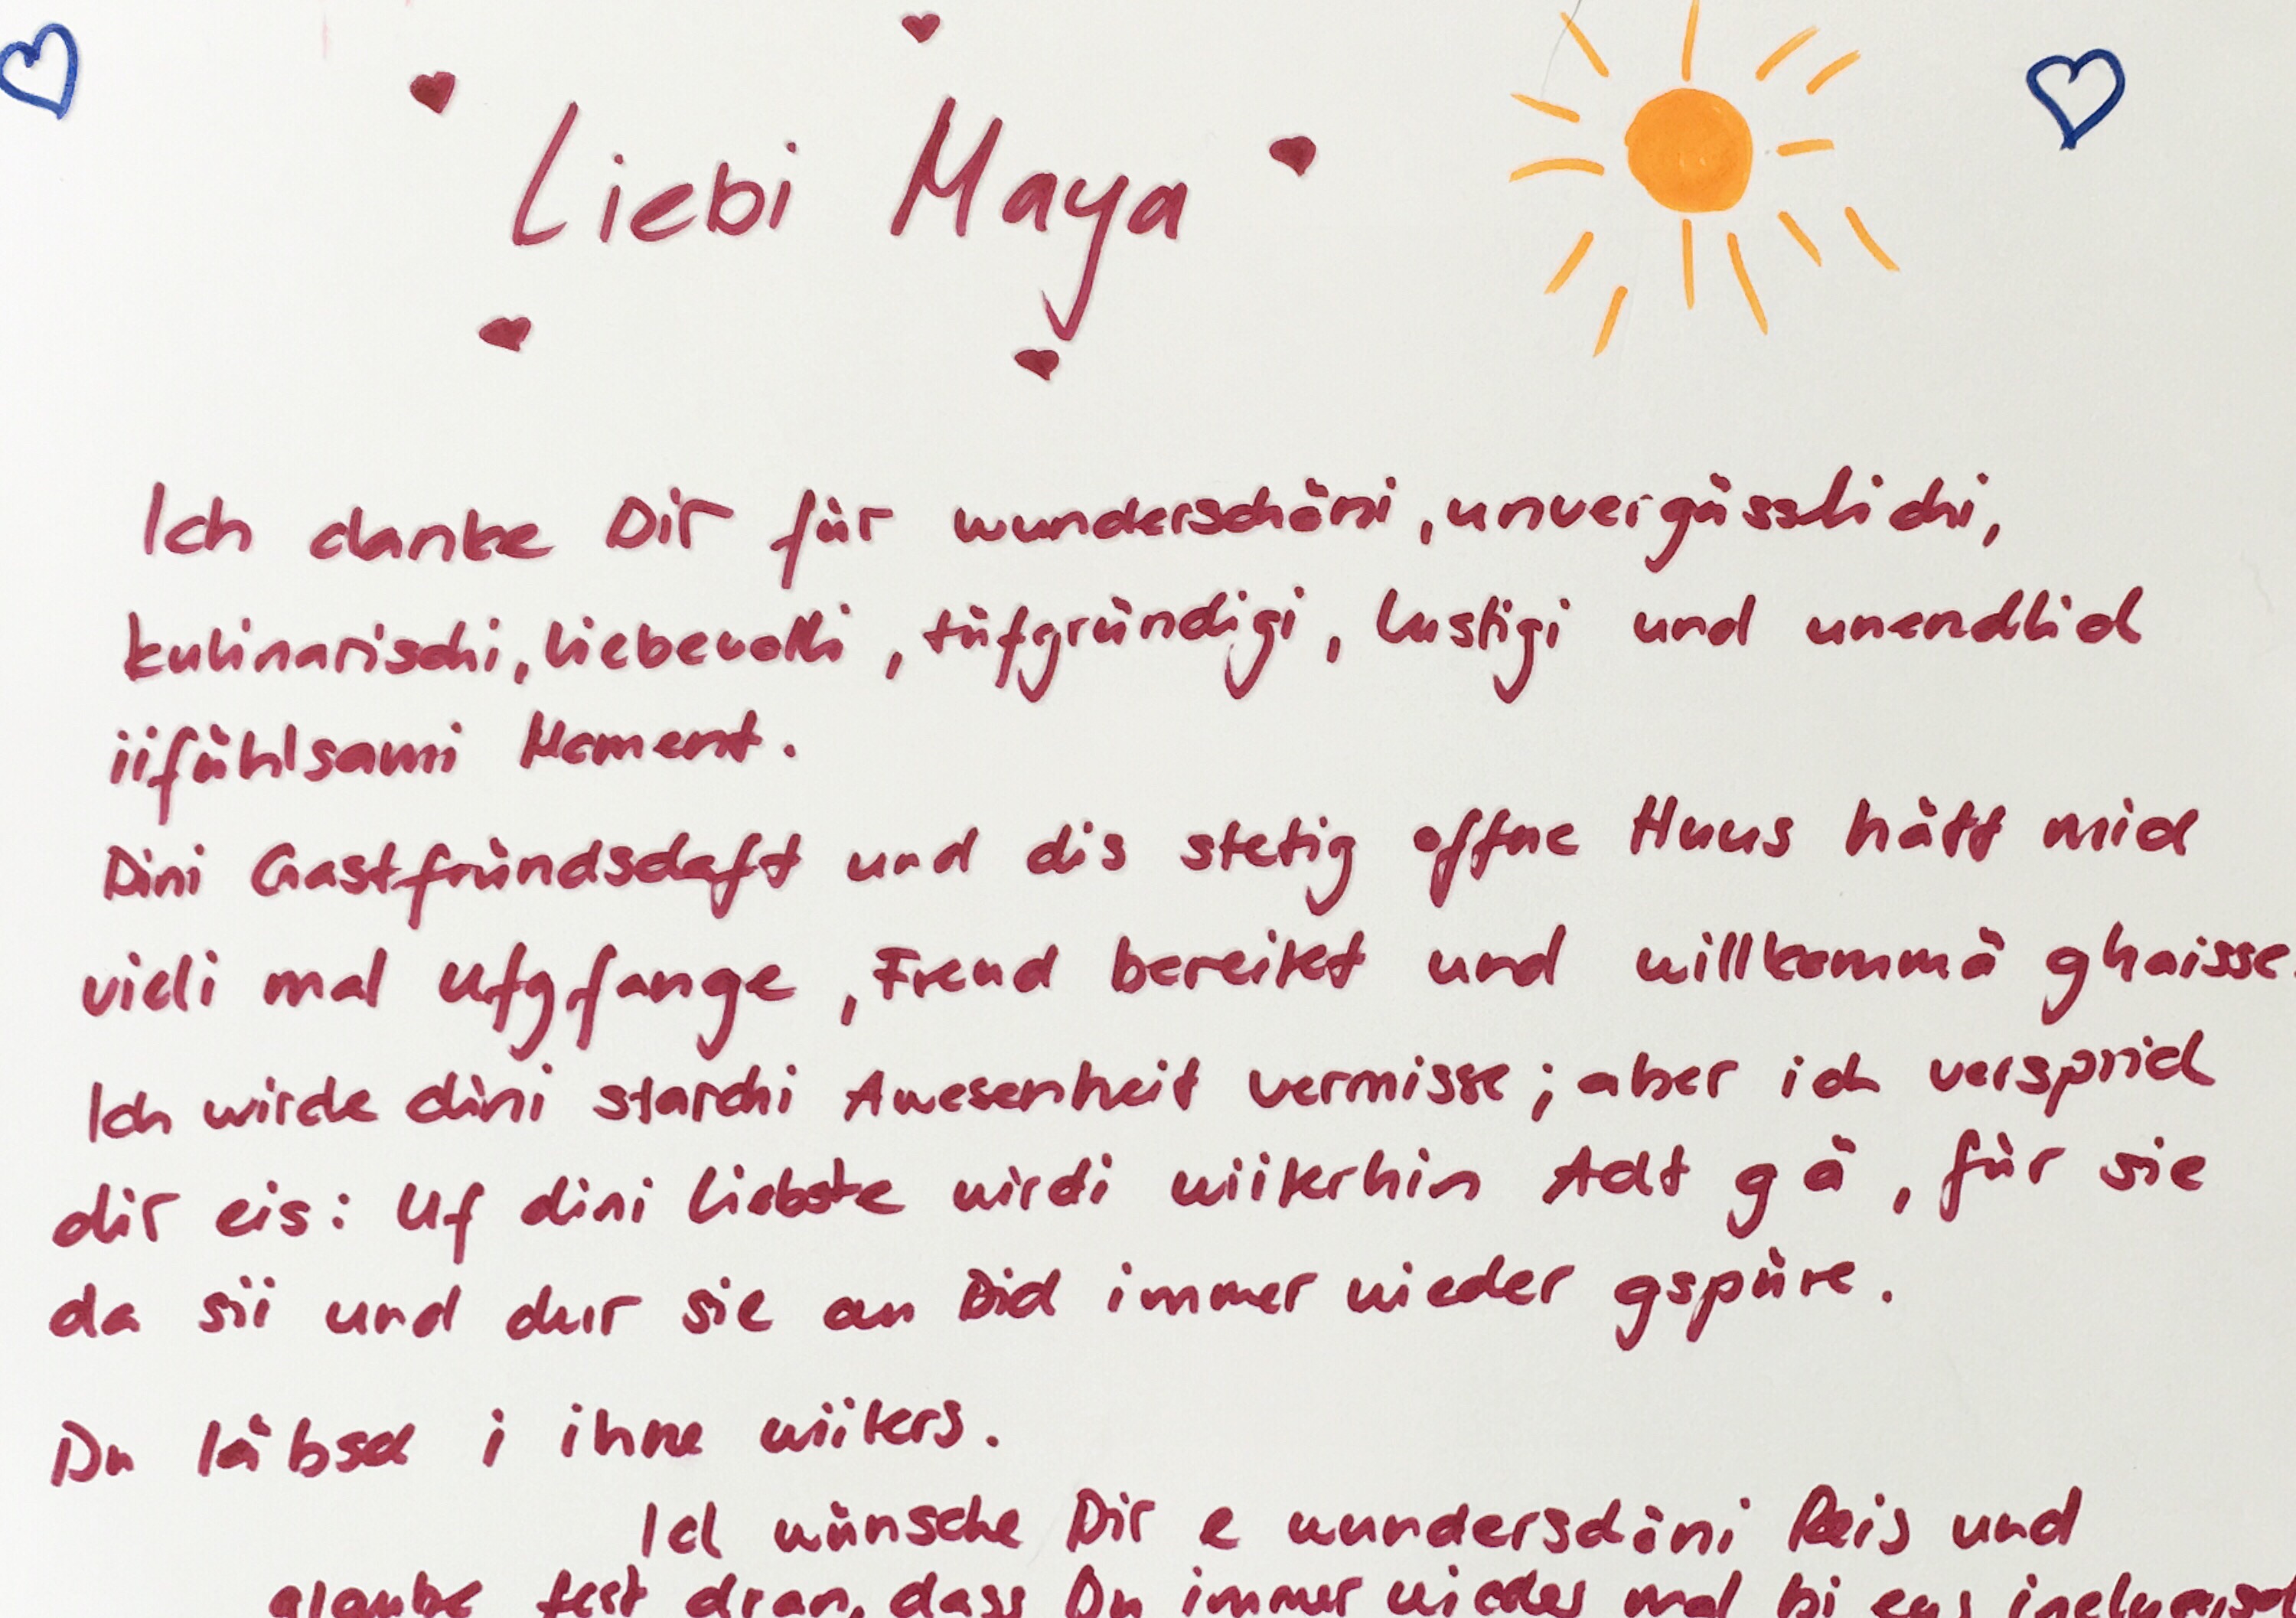 Liebi Maya
Ich danke Dir für wunderschöni, unvergässlichi,
kulinarischi, liebevolli, tüfgründigi, lustigi und unendlich
iifühlsami Moment.
Dini Gastfründschaft und dis stetig offne Huus hätt mich
vieli mal Ufgfange, Freud bereitet und willkommä ghaisse.
Ich wirde dini starchi Awesenheit vermisse; aber ich versprich
dir eis: Uf dini Liebste wirdi wiiterhin Acht gä, für sie
da sii und dur sie au Dich immer wieder gspüre.
Du läbsch i ihne wiiters.
Ich wünsche Dir e wunderschöni Reis und
glaube fest dran, dass Du immer wieder mal bi eus